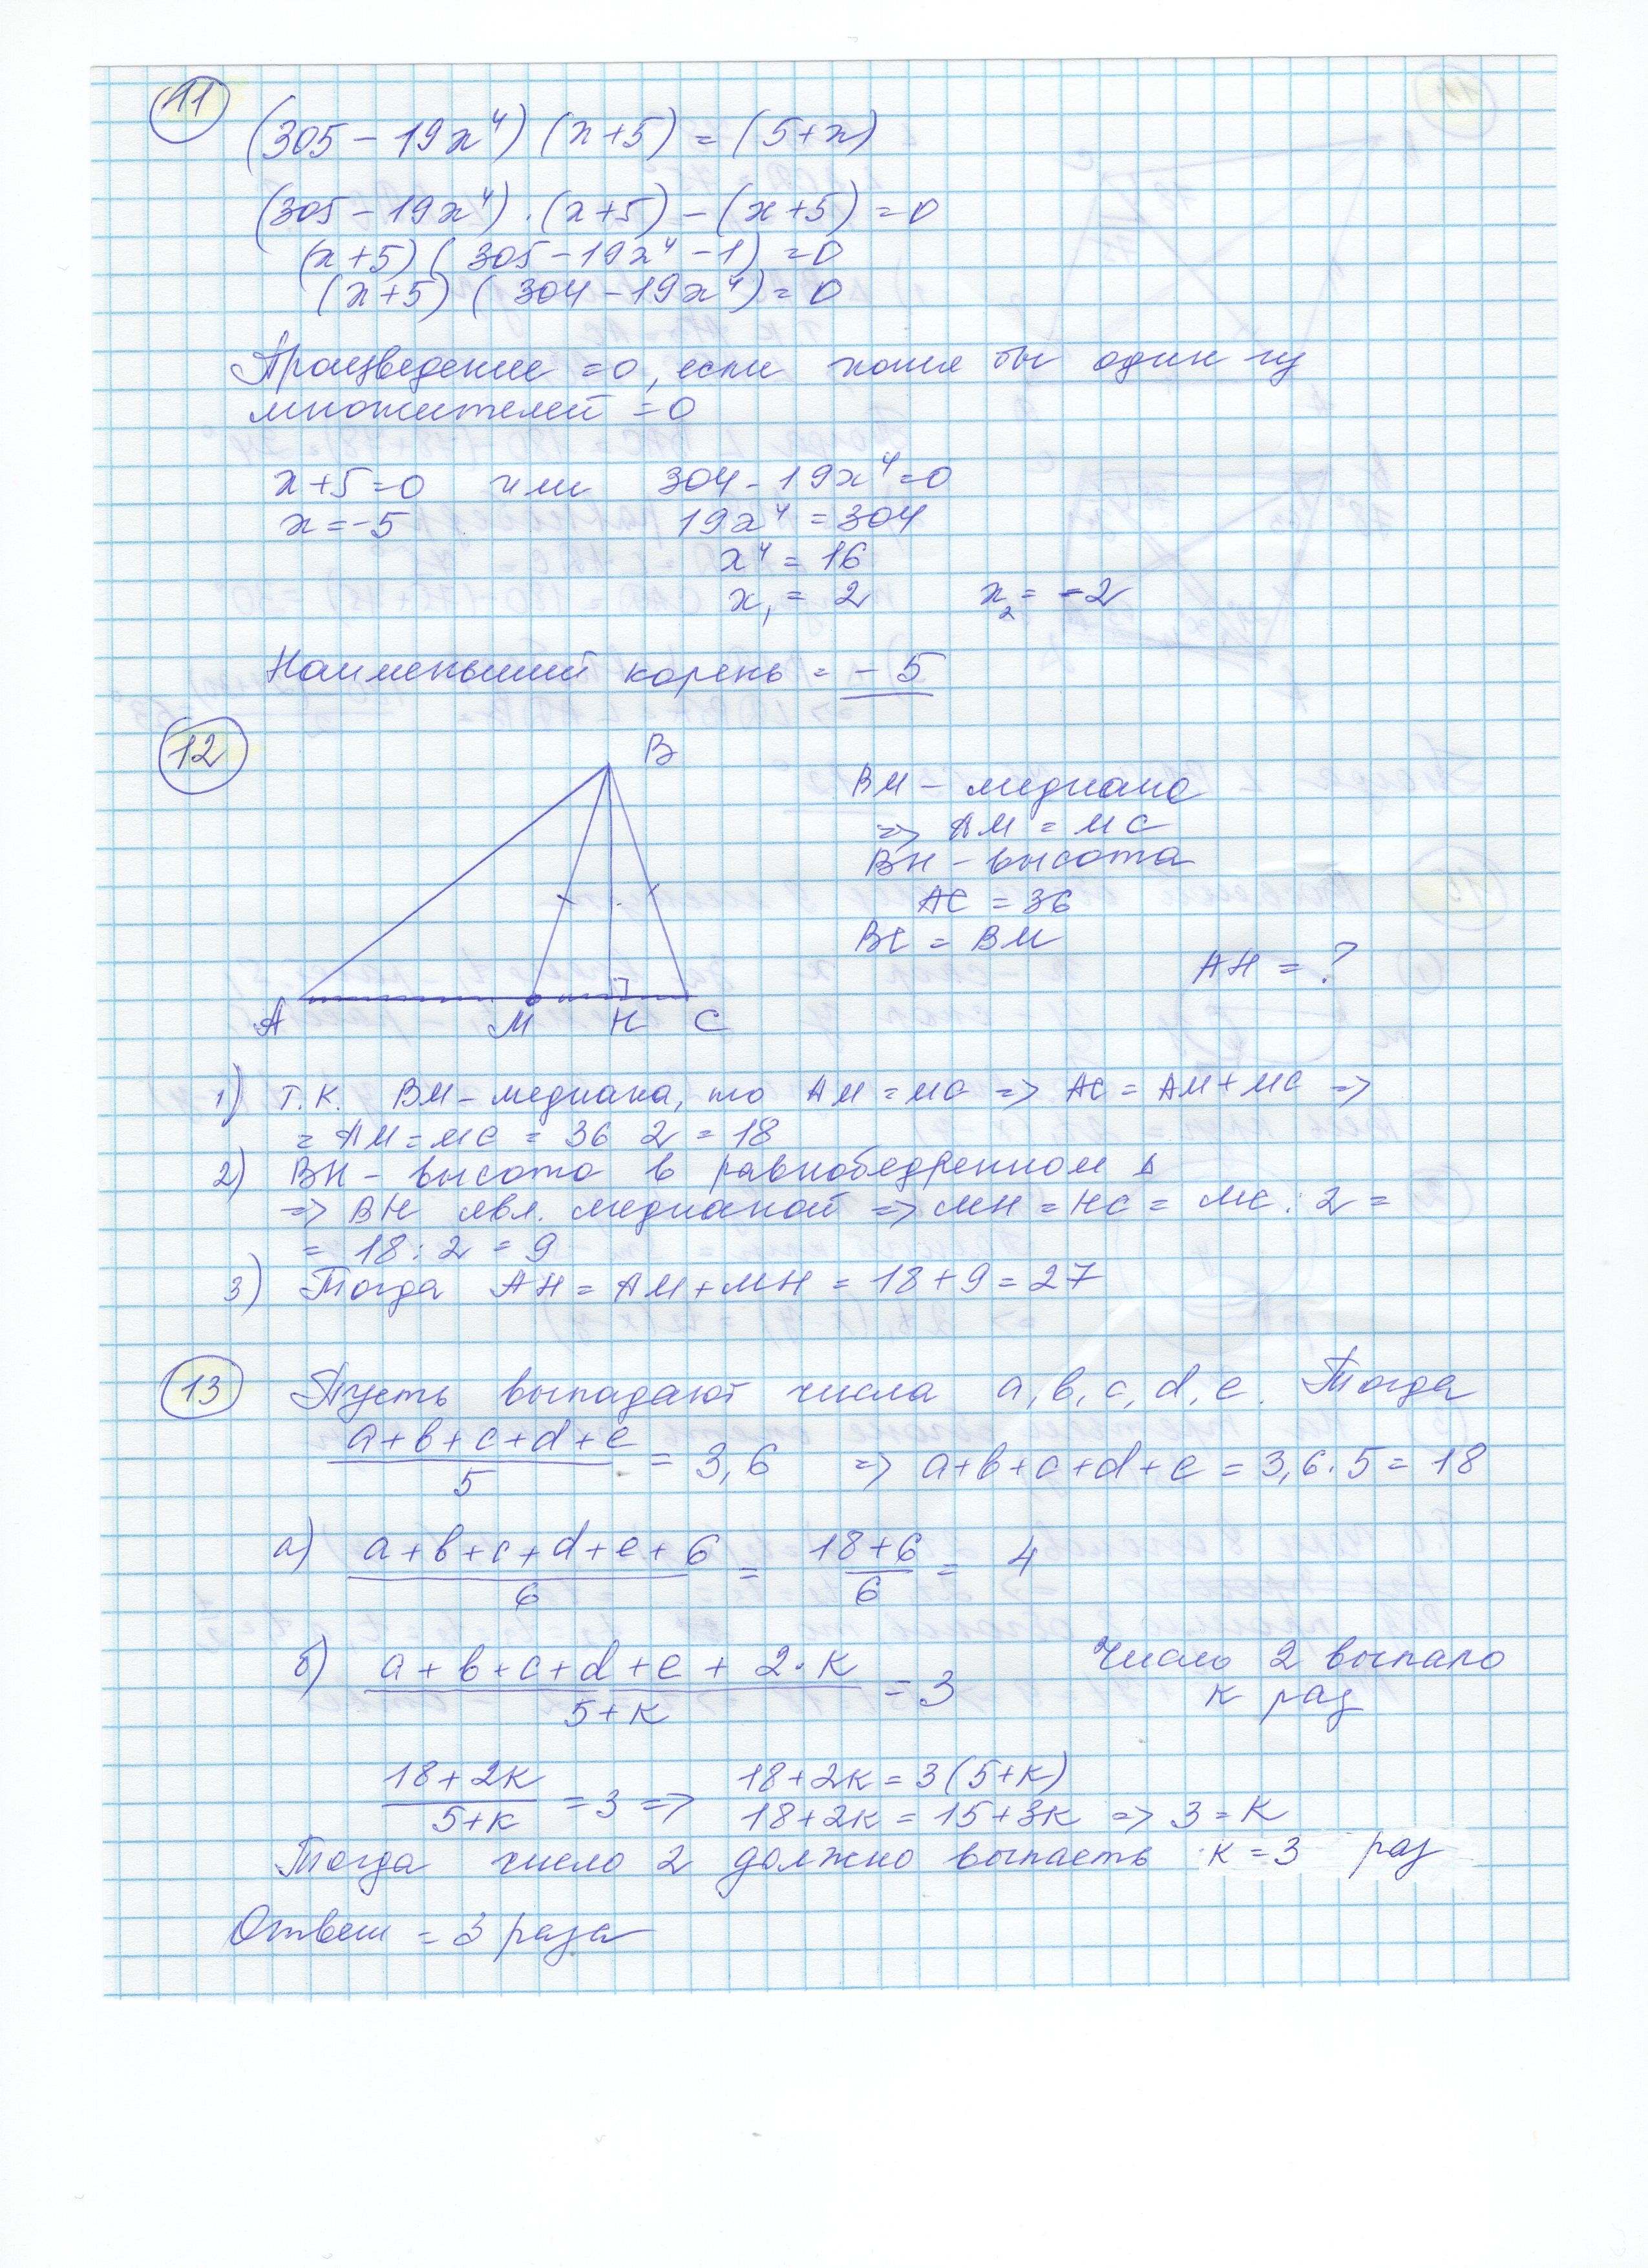 11
(305 - 19x⁴) (x+5) = (5+x)
(305 - 19x⁴) · (x+5) - (x+5) = 0
(x+5) (305 - 19x⁴ - 1) = 0
(x+5) (304 - 19x⁴) = 0
Произведение = 0, если хотя бы один из
множителей = 0
x+5=0 или 304 - 19x⁴ = 0
x = -5 19x⁴ = 304
x⁴ = 16
x₁ = 2 x₂ = -2
Наименьший корень = -5
12
B
A M H C
BM - медиана
=> AM = MC
BH - высота
AC = 36
BC = BM
AH = ?
1) Т.К. BM - медиана, то AM = MC => AC = AM + MC =>
= AM = MC = 36 2 = 18
2) BH - высота в равнобедренном Δ
=> BH явл. медианой => MH = HC = MC : 2 =
= 18 : 2 = 9
3) Тогда AH = AM + MH = 18 + 9 = 27
13 Пусть выпадают числа a, b, c, d, e. Тогда
(a+b+c+d+e)/5 = 3,6 => a+b+c+d+e = 3,6 · 5 = 18
а) (a+b+c+d+e+6)/6 = (18+6)/6 = 4
б) (a+b+c+d+e+2·к)/(5+к) = 3 Число 2 выпало
к раз
(18+2к)/(5+к) = 3 => 18+2к = 3(5+к)
18+2к = 15+3к => 3 = к
Тогда число 2 должно выпасть к = 3 раз
Ответ = 3 раза